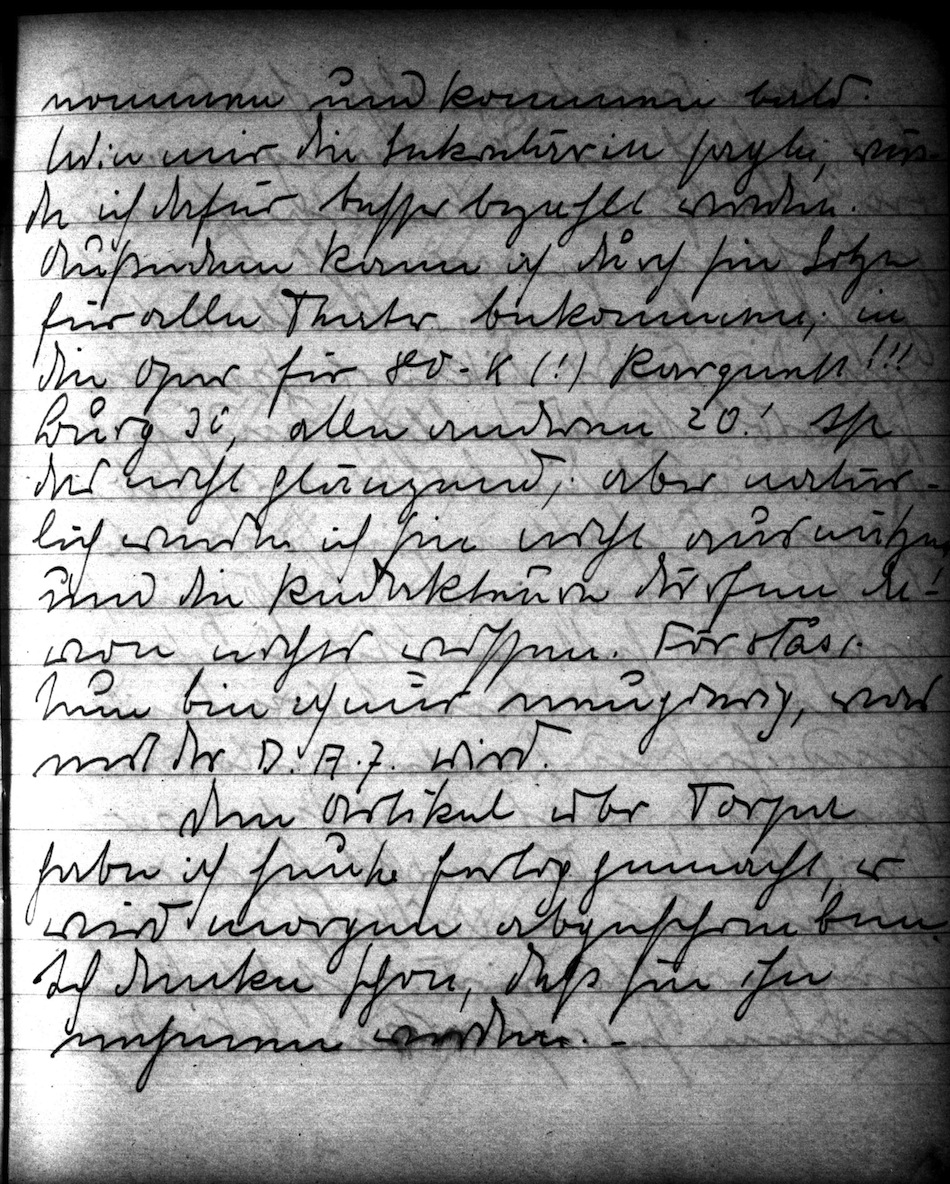 nommen und kommen bald.
Wie mir die Sekretärin sagte, wür-
de ich dafür besser bezahlt werden.
Außerdem kann ich durch sie Sitze
für alle Theater bekommen, in
die Oper für 80.- K (!) Parquett!!!
Burg 30, alle anderen 20.! Ist
das nicht glänzend, aber natür-
lich werde ich sie nicht ausnützen
und die Redakteure dürfen da-
von nichts wissen.
Nun bin ich nur neugierig, was
mit der D. A. Z. wird.
Den Artikel über
habe ich heute fertig gemacht, er
wird morgen abgeschrieben.
Ich denke schon, daß sie ihn
nehmen werden. -